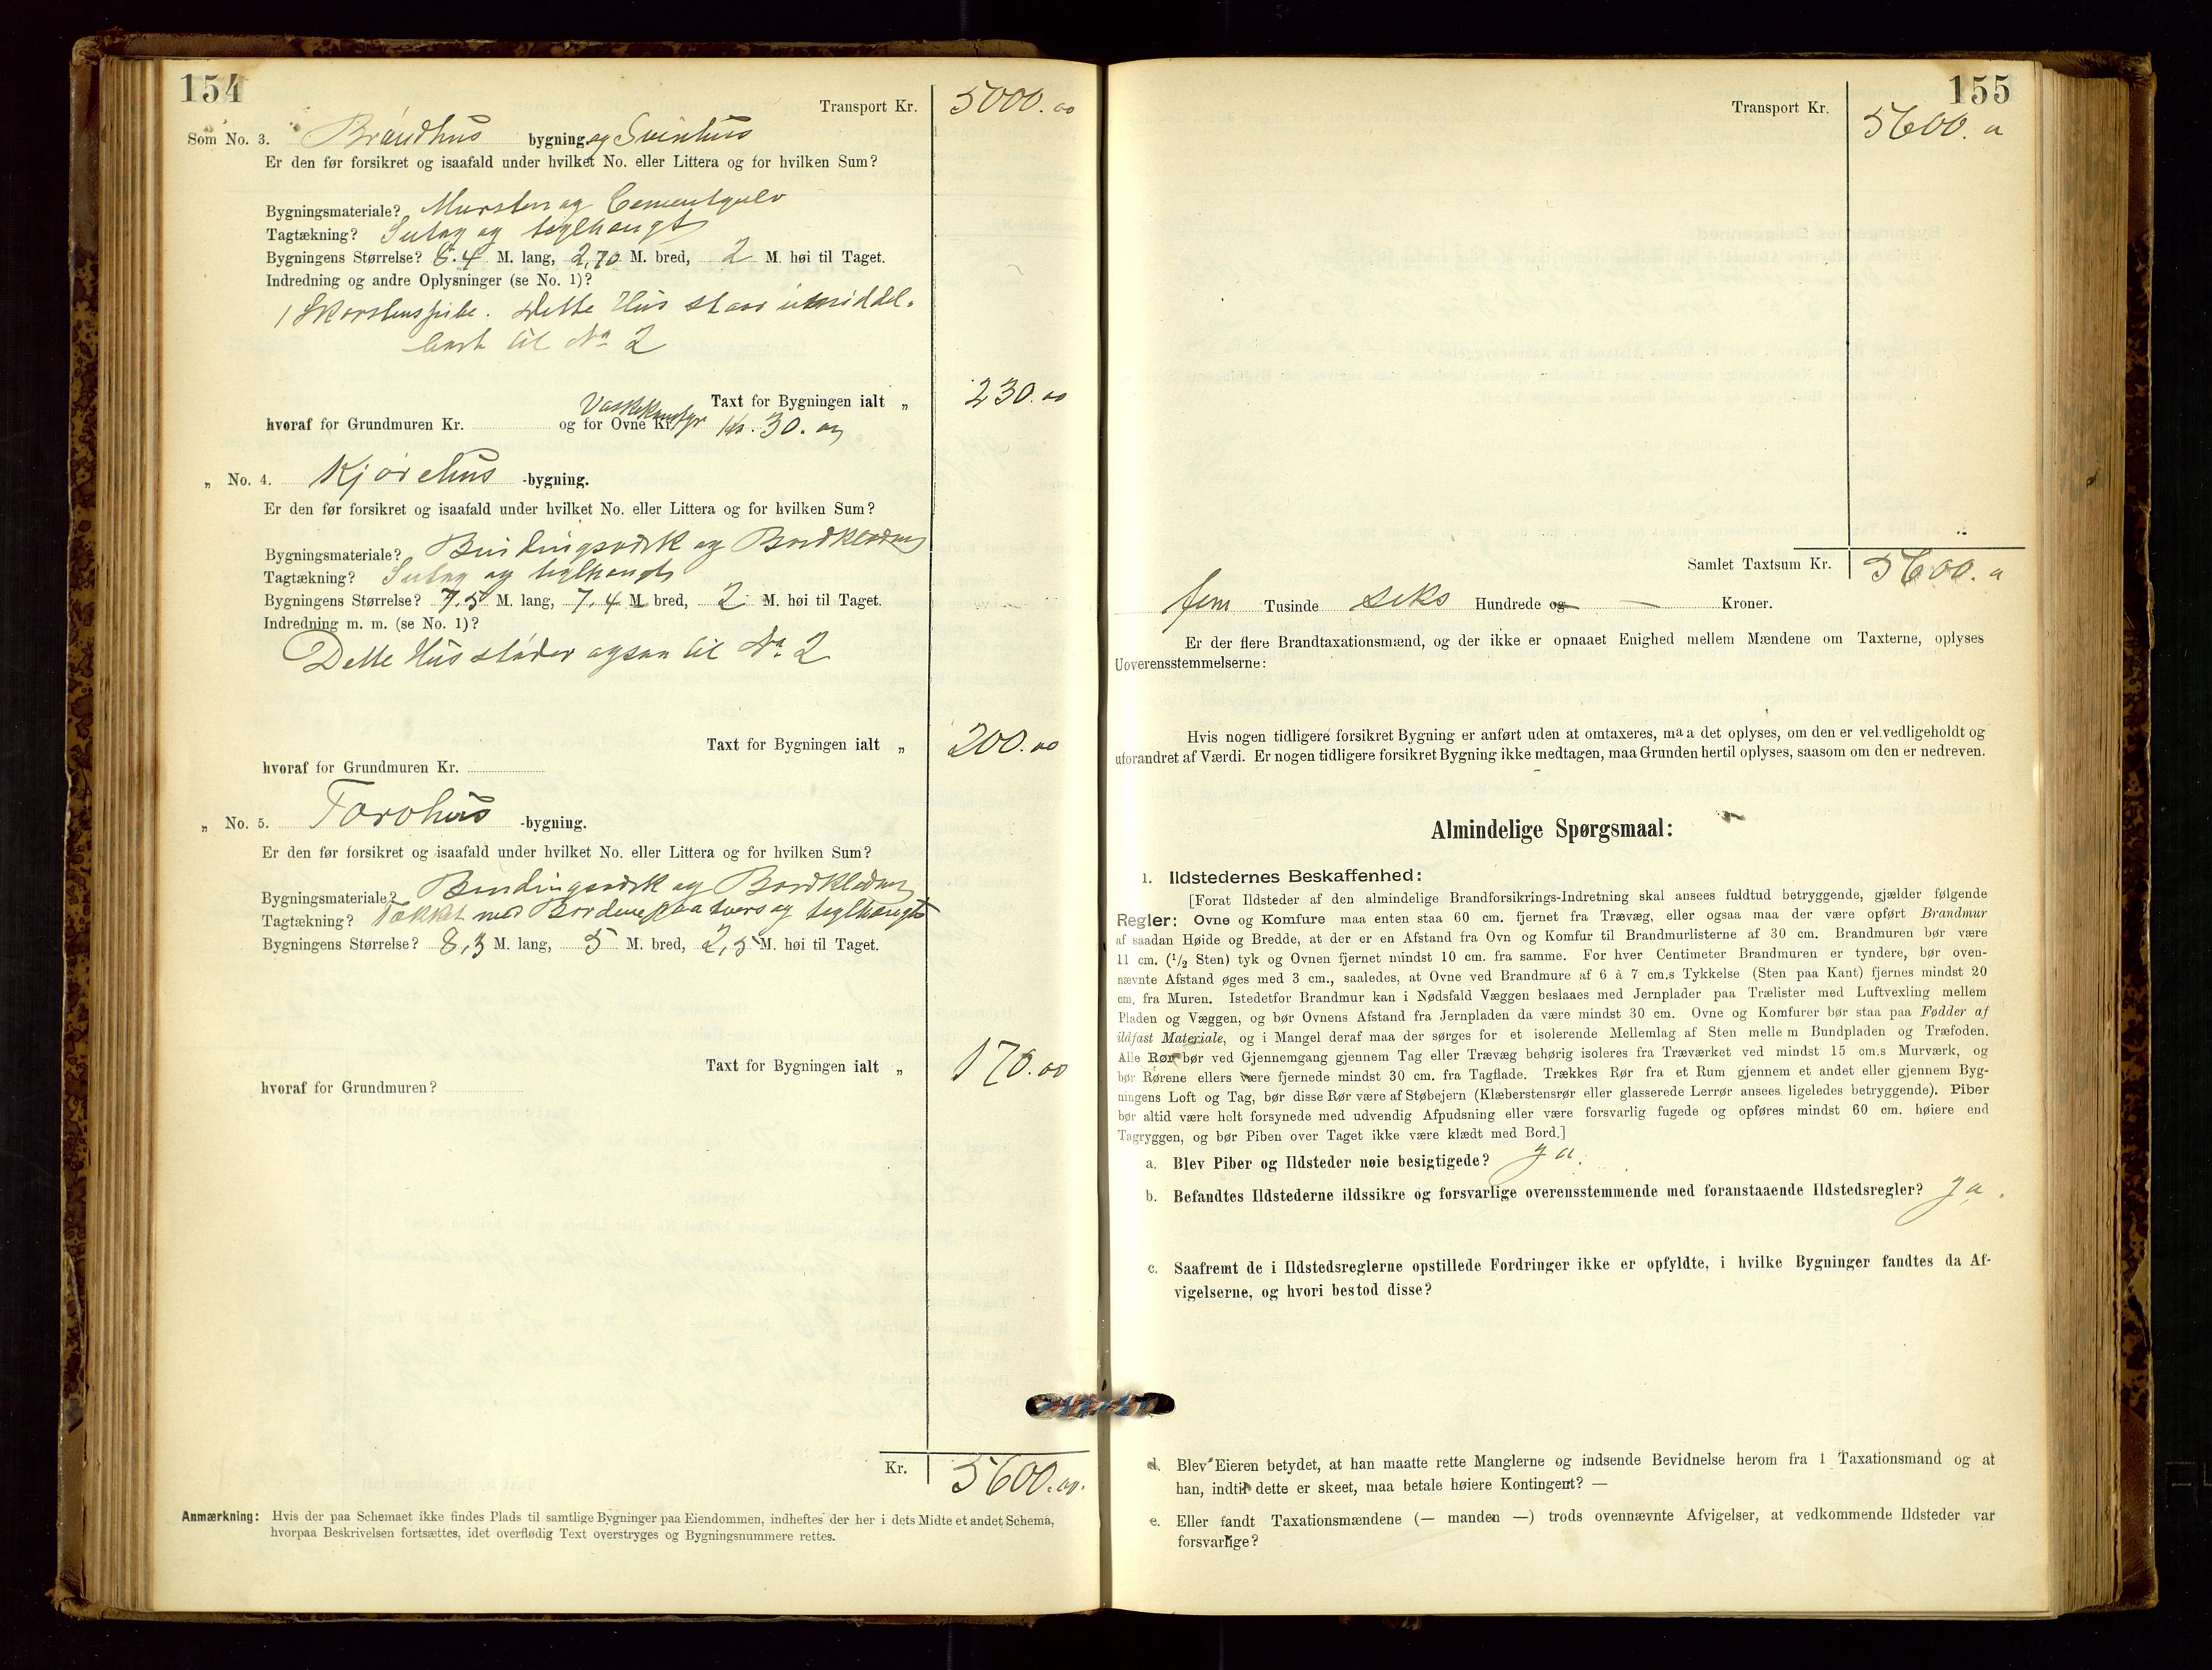 154
Transport Kr. 5000.00
Som No. 3. Brandhus bygning. og Svinhus
Er den før forsikret og isaafald under hvilket No. eller Littera og for hvilken Sum?
Bygningsmateriale? Mursten og Cementgulv
Tagtækning? Sutag og teglhængt
Bygningens Størrelse? 8.4 M. lang, 2,70 M. bred, 2 M. høi til Taget.
Indredning og andre Oplysninger (se No. 1)?
1 Skorstenspibe. Dette Hus staar umiddel-
bart til No 2
Taxt for Bygningen ialt „ 230.00
hvoraf for Grundmuren Kr. og for Ovne Kr. Kr. 30.
„ No. 4. Kjørehus -bygning.
Er den før forsikret og isaafald under hvilket No. eller Littera og for hvilken Sum?
Bygningsmateriale? Bindingsværk og Bordklædning
Tagtækning? Sutag og teglhængt
Bygningens Størrelse? 7.5 M. lang, 7.4 M. bred, 2 M. høi til Taget.
Indredning m. m. (se No. 1)?
Dette Hus støder ogsaa til No. 2
Taxt for Bygningen ialt „ 200.00
hvoraf for Grundmuren Kr.
„ No. 5. Torvhus -bygning.
Er den før forsikret og isaafald under hvilket No. eller Littera og for hvilken Sum?
Bygningsmateriale? Bindingsværk og Bordklædning
Tagtækning? Tækket med Bordene paa tvers og teglhængt
Bygningens Størrelse? 8,3 M. lang, 5 M. bred, 2,5 M. høi til Taget.
Taxt for Bygningen ialt „ 170.00
hvoraf for Grundmuren?
Kr. 5600.00.
Anmærkning: Hvis der paa Schemaet ikke findes Plads til samtlige Bygninger paa Eiendommen, indheftes der her i dets Midte et andet Schema,
hvorpaa Beskrivelsen fortsættes, idet overflødig Text overstryges og Bygningsnummere rettes.
155
Transport Kr. 5600.
Samlet Taxtsum Kr. 5600.
fem Tusinde seks Hundrede og — Kroner.
Er der flere Brandtaxationsmænd, og der ikke er opnaaet Enighed mellem Mændene om Taxterne, oplyses
Uoverensstemmelserne:
Hvis nogen tidligere forsikret Bygning er anført uden at omtaxeres, maa det oplyses, om den er vel vedligeholdt og
uforandret af Værdi. Er nogen tidligere forsikret Bygning ikke medtagen, maa Grunden hertil oplyses, saasom om den er nedreven.
Almindelige Spørgsmaal:
1. Ildstedernes Beskaffenhed:
[Forat Ildsteder af den almindelige Brandforsikrings-Indretning skal ansees fuldtud betryggende, gjælder følgende
Regler: Ovne og Komfure maa enten staa 60 cm. fjernet fra Trævæg, eller ogsaa maa der være opført Brandmur
af saadan Høide og Bredde, at der er en Afstand fra Ovn og Komfur til Brandmurlisterne af 30 cm. Brandmuren bør være
11 cm. (1/2 Sten) tyk og Ovnen fjernet mindst 10 cm. fra samme. For hver Centimeter Brandmuren er tyndere, bør oven-
nævnte Afstand øges med 3 cm., saaledes, at Ovne ved Brandmure af 6 à 7 cm.s Tykkelse (Sten paa Kant) fjernes mindst 20
cm. fra Muren. Istedetfor Brandmur kan i Nødsfald Væggen beslaaes med Jernplader paa Trælister med Luftvexling mellem
Pladen og Væggen, og bør Ovnens Afstand fra Jernpladen da være mindst 30 cm. Ovne og Komfurer bør staa paa Fødder af
ildfast Materiale, og i Mangel deraf maa der sørges for et isolerende Mellemlag af Sten mellem Bundpladen og Træfoden.
Alle Rør bør ved Gjennemgang gjennem Tag eller Trævæg behørig isoleres fra Træværket ved mindst 15 cm.s Murværk, og
bør Rørene ellers være fjernede mindst 30 cm. fra Tagflade. Trækkes Rør fra et Rum gjennem et andet eller gjennem Byg-
ningens Loft og Tag, bør disse Rør være af Støbejern (Klæberstensrør eller glasserede Lerrør ansees ligeledes betryggende). Piber
bør altid være helt forsynede med udvendig Afpudsning eller være forsvarlig fugede og opføres mindst 60 cm. høiere end
Tagryggen, og bør Piben over Taget ikke være klædt med Bord.]
a. Blev Piber og Ildsteder nøie besigtigede? ja.
b. Befandtes Ildstederne ildssikre og forsvarlige overensstemmende med foranstaaende Ildstedsregler? ja.
c. Saafremt de i Ildstedsreglerne opstillede Fordringer ikke er opfyldte, i hvilke Bygninger fandtes da Af-
vigelserne, og hvori bestod disse?
d. Blev Eieren betydet, at han maatte rette Manglerne og indsende Bevidnelse herom fra 1 Taxationsmand og at
han, indtil dette er skeet, maa betale høiere Kontingent? —
e. Eller fandt Taxationsmændene (— manden —) trods ovennævnte Afvigelser, at vedkommende Ildsteder var
forsvarlige?